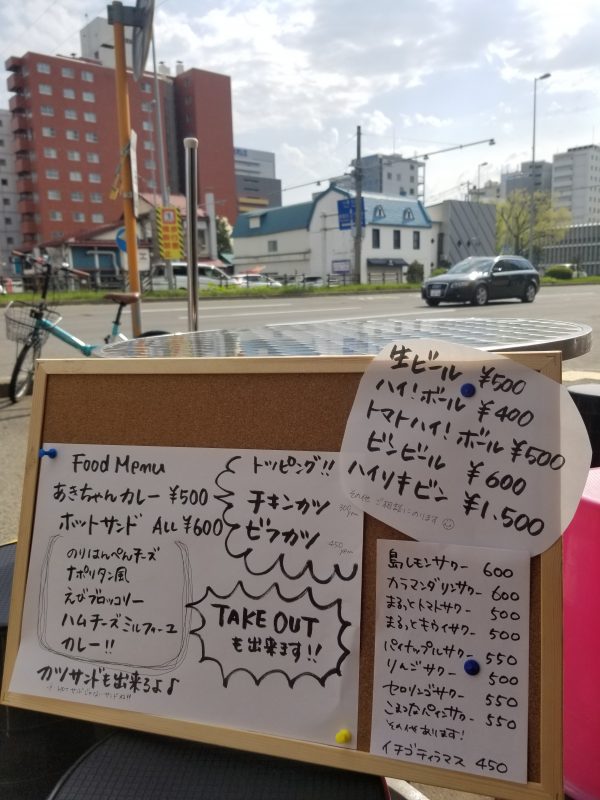 Food Menu
あきちゃんカレー ¥500
ホットサンド ALL ¥600
のりはんぺんチーズ
ナポリタン風
えびブロッコリー
ハムチーズミルフィーユ
カレー!!
カツサンドも出来るよ♪
トッピング!!
チキンカツ
300yen
ビフカツ
450yen
TAKE OUT
も出来ます!!
生ビール ¥500
ハイ!ボール ¥400
トマトハイ!ボール ¥500
ビンビール ¥600
ハイリキビン ¥1,500
その他ご相談にのります
島レモンサワー 600
カラマンダリンサワー 600
まるっとトマトサワー 500
まるっとキウイサワー 500
パイナップルサワー 550
りんごサワー 500
セロリンゴサワー 550
こまつなパインサワー 550
その他あります!
イチゴティラミス 450